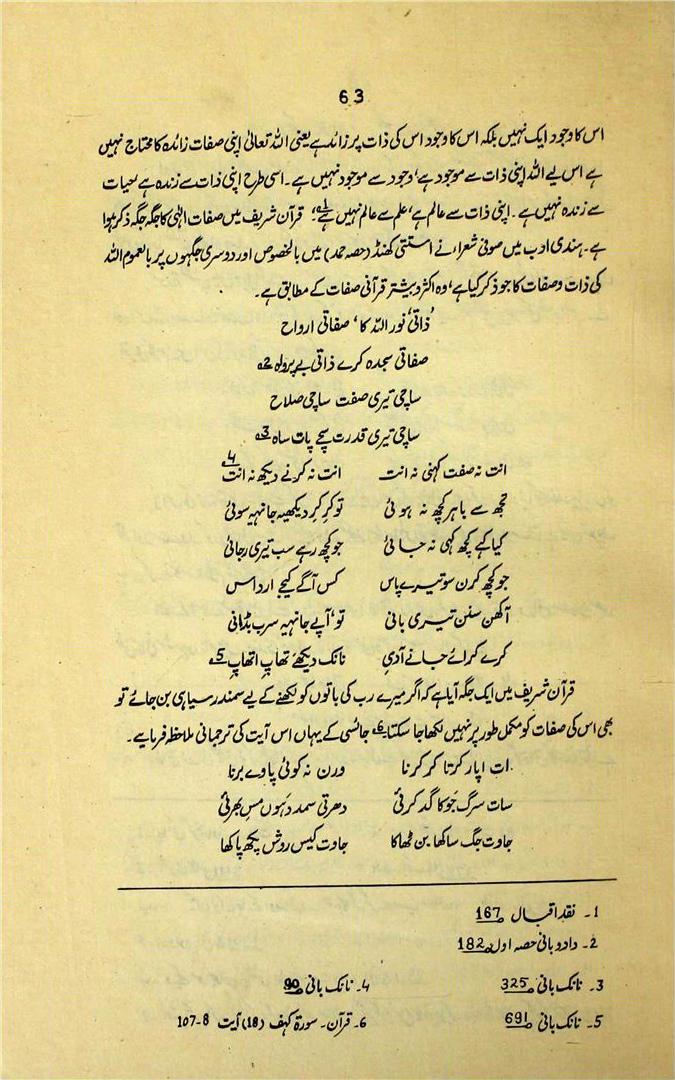 63
اس کا وجود ایک نہیں بلکہ اس کا وجود اس کی ذات پر زائد ہے یعنی اللہ تعالیٰ اپنی صفات زائدہ کا محتاج نہیں
ہے اس لیے اللہ اپنی ذات سے موجود ہے، وجود سے موجود نہیں ہے۔ اسی طرح اپنی ذات سے زندہ ہے حیات
سے زندہ نہیں ہے۔ اپنی ذات سے عالم ہے، علم سے عالم نہیں ہے 1؎ قرآن شریف میں صفات الٰہی کا جگہ جگہ ذکر ہوا
ہے۔ ہندی ادب میں صوفی شعراء نے استتی کھنڈ (حصہ حمد) میں بالخصوص اور دوسری جگہوں پر بالعموم اللہ
کی ذات و صفات کا جو ذکر کیا ہے، وہ اکثر و بیشتر قرآنی صفات کے مطابق ہے۔
ُذاتی، نور اللہ کا، صفاتی ارواح
صفاتی سجدہ کرے ذاتی بے پرواہ 2؎
ساچی تیری صفت ساچی صلاح
ساچی تیری قدرت سچے پات ساہ 3؎
انت نہ صفت کہنی نہ انت انت نہ کرنے دیکھ نہ انت 4؎
تجھ سے باہر کچھ نہ ہوئی تو کر کر دیکھیہ جانہیہ سوئی
کیا کہے کچھ کہی نہ جائی جو کچھ رہے سب تیری رجائی
جو کچھ کرن سو تیرے پاس کس آگے کیجے ارداس
آکھن سنن تیری بانی تو، آپے جانہیہ سرب بڈانی
کرے کرائے جانے آدی نانک دیکھئے تھاپ اتھاپ 5؎
قرآن شریف میں ایک جگہ آیا ہے کہ اگر میرے رب کی باتوں کو لکھنے کے لیے سمندر سیاہی بن جائے تو
بھی اس کی صفات کو مکمل طور پر نہیں لکھا جا سکتا 6؎ جائسی کے یہاں اس آیت کی ترجمانی ملاحظہ فرمایے۔
ات اپار کرتا کر کرنا ورن نہ کوئی پاوے برنا
سات سرگ جو کا گد کرئی دھرتی سمد دہوں مس بھرئی
جاوت جگ ساکھا بن ڈھاکا جاوت کیس روش پکھ پاکھا
1۔ نقد اقبال ص 167
2۔ دادو بانی حصہ اول ص 182
3۔ نانک بانی ص 325 4۔ نانک بانی ص 90
5۔ نانک بانی ص 691 6۔ قرآن۔ سورۃ کہف (18) آیت 8-107